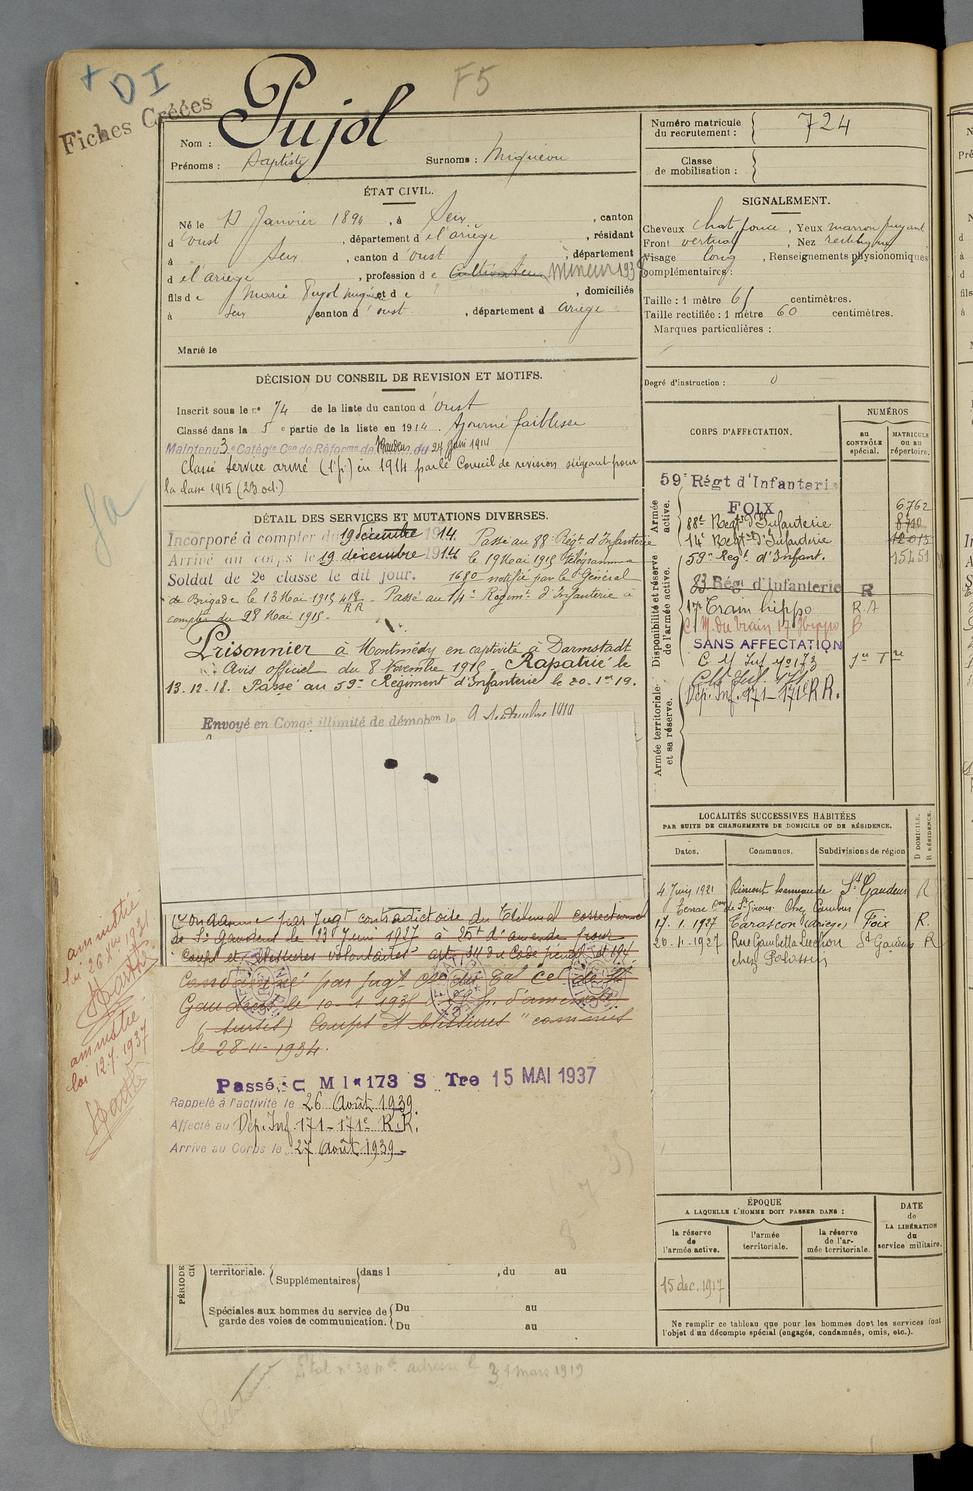 + D I
F5
Fiches Créées
Nom : Pujol
Prénoms : Baptiste Surnoms : Miquéou
Numéro matricule du recrutement : 724
Classe de mobilisation :
ÉTAT CIVIL.
Né le 17 Janvier 1894, à Seix, canton
d'oust, département de l'ariège, résidant
à Seix, canton d'oust, département
de l'ariège, profession de Cultivateur mineur 1938
fils de Marie Pujol Miquéou et de ?, domiciliés
à Seix canton d'oust, département d ariège
Marié le
SIGNALEMENT.
Cheveux chat. foncé, Yeux marron
Front vertical, Nez rectiligne
Visage long, Renseignements physionomiques
complémentaires :
Taille : 1 mètre 61 centimètres.
Taille rectifiée : 1 mètre 60 centimètres.
Marques particulières :
Degré d'instruction : 0
DÉCISION DU CONSEIL DE REVISION ET MOTIFS.
Inscrit sous le n° 74 de la liste du canton d'oust
Classé dans la 5e partie de la liste en 1914. Ajourné faiblesse
Maintenu 3e Catégie Con de Réforme de Gaudens du 24 Juin 1914
Classé service armé (1re p.) en 1914 par le Conseil de revision siégeant pour
la classe 1915 (23 oct.)
DÉTAIL DES SERVICES ET MUTATIONS DIVERSES.
Incorporé à compter du 19 décembre 1914. Passé au 88e Régt d'Infanterie
Arrivé au corps le 19 décembre 1914 le 19 Mai 1915 télégramme
Soldat de 2e classe le dit jour. 1680 notifié par le Général
de Brigade le 13 Mai 1915 Passé au 14e Régimt d'Infanterie à
compter du 28 Mai 1915.
Prisonnier à Montmédy en captivité à Darmstadt
Avis officiel du 8 Novembre 1915. Rapatrié le
13.12.18. Passé au 59e Régiment d'Infanterie le 20.1er 19.
Envoyé en Congé illimité de démobon le 9 Septembre 1919
Condamné par Jugt contradictoire du Tribunal correctionnel
de St Gaudens le 23 Juin 1927 à 25f d'amende pour
Coups et blessures volontaires art. 311 du Code pénal
Condamné par jugt
Gaudens le 10.1.1935 d'amende
(sursis) Coups et blessures "commis
le 28-11-1934.
Passé C M I n° 173 S Tre 15 MAI 1937
Rappelé à l'activité le 26 Août 1939.
Affecté au Dép. Inf. 171-171e R.R.
Arrivé au Corps le 27 Août 1939.
amnistié
loi 26 Xbre 1931
amnistié
loi 12.7.1937
CORPS D'AFFECTATION.
NUMÉROS
au CONTRÔLE spécial.
MATRICULE OU AU répertoire.
Armée active.
Disponibilité et réserve de l'armée active.
Armée territoriale et sa réserve.
59e Régt d'Infanterie
FOIX 6762
88e Regt d'Infanterie
14e Regt d'Infanterie
59e Regt d'Infant. 15451
83 Régt d'Infanterie R
17e Train hippo R.A
SANS AFFECTATION
C M Inf n° 173
Dép. Inf. 171-171e R.R.
LOCALITÉS SUCCESSIVES HABITÉES
PAR SUITE DE CHANGEMENTS DE DOMICILE OU DE RÉSIDENCE.
Dates. Communes. Subdivisions de région
D DOMICILE.
R RÉSIDENCE.
4 Juin 1921 Rimont St Gaudens R
17.1.1927 Tarascon (Ariège) Foix R.
20.11.1927 Rue Gambetta Luchon St Gaudens R
chez
ÉPOQUE
A LAQUELLE L'HOMME DOIT PASSER DANS :
DATE de LA LIBÉRATION du service militaire.
la réserve de l'armée active.
l'armée territoriale.
la réserve de l'armée territoriale.
15 dec. 1917
Ne remplir ce tableau que pour les hommes dont les services font
l'objet d'un décompte spécial (engagés, condamnés, omis, etc.).
territoriale. Supplémentaires dans l , du au
Spéciales aux hommes du service de garde des voies de communication. Du au
Du au
31 mars 1919